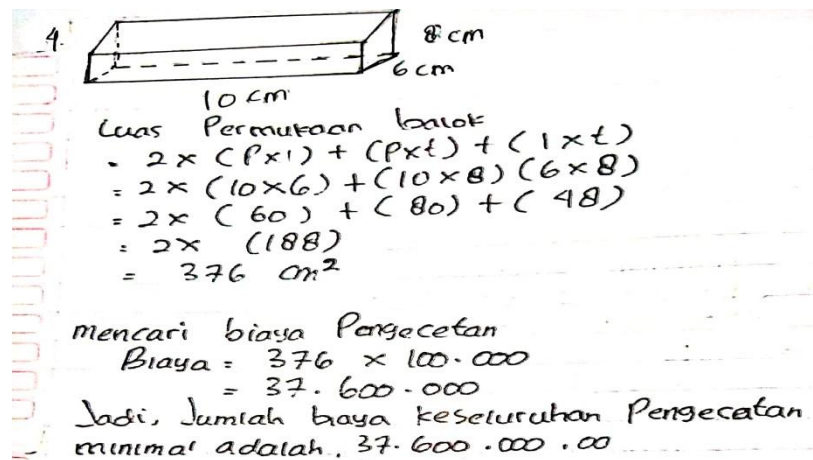 4.
8 cm
6 cm
10 cm
Luas Permukaan balok
= 2 × (P×l) + (P×t) + (l×t)
= 2 × (10×6) + (10×8) (6×8)
= 2× (60) + (80) + (48)
= 2× (188)
= 376 cm²
mencari biaya Pengecetan
Biaya = 376 × 100.000
= 37.600.000
Jadi, Jumlah biaya keseluruhan Pengecatan
minimal adalah, 37.600.000.00